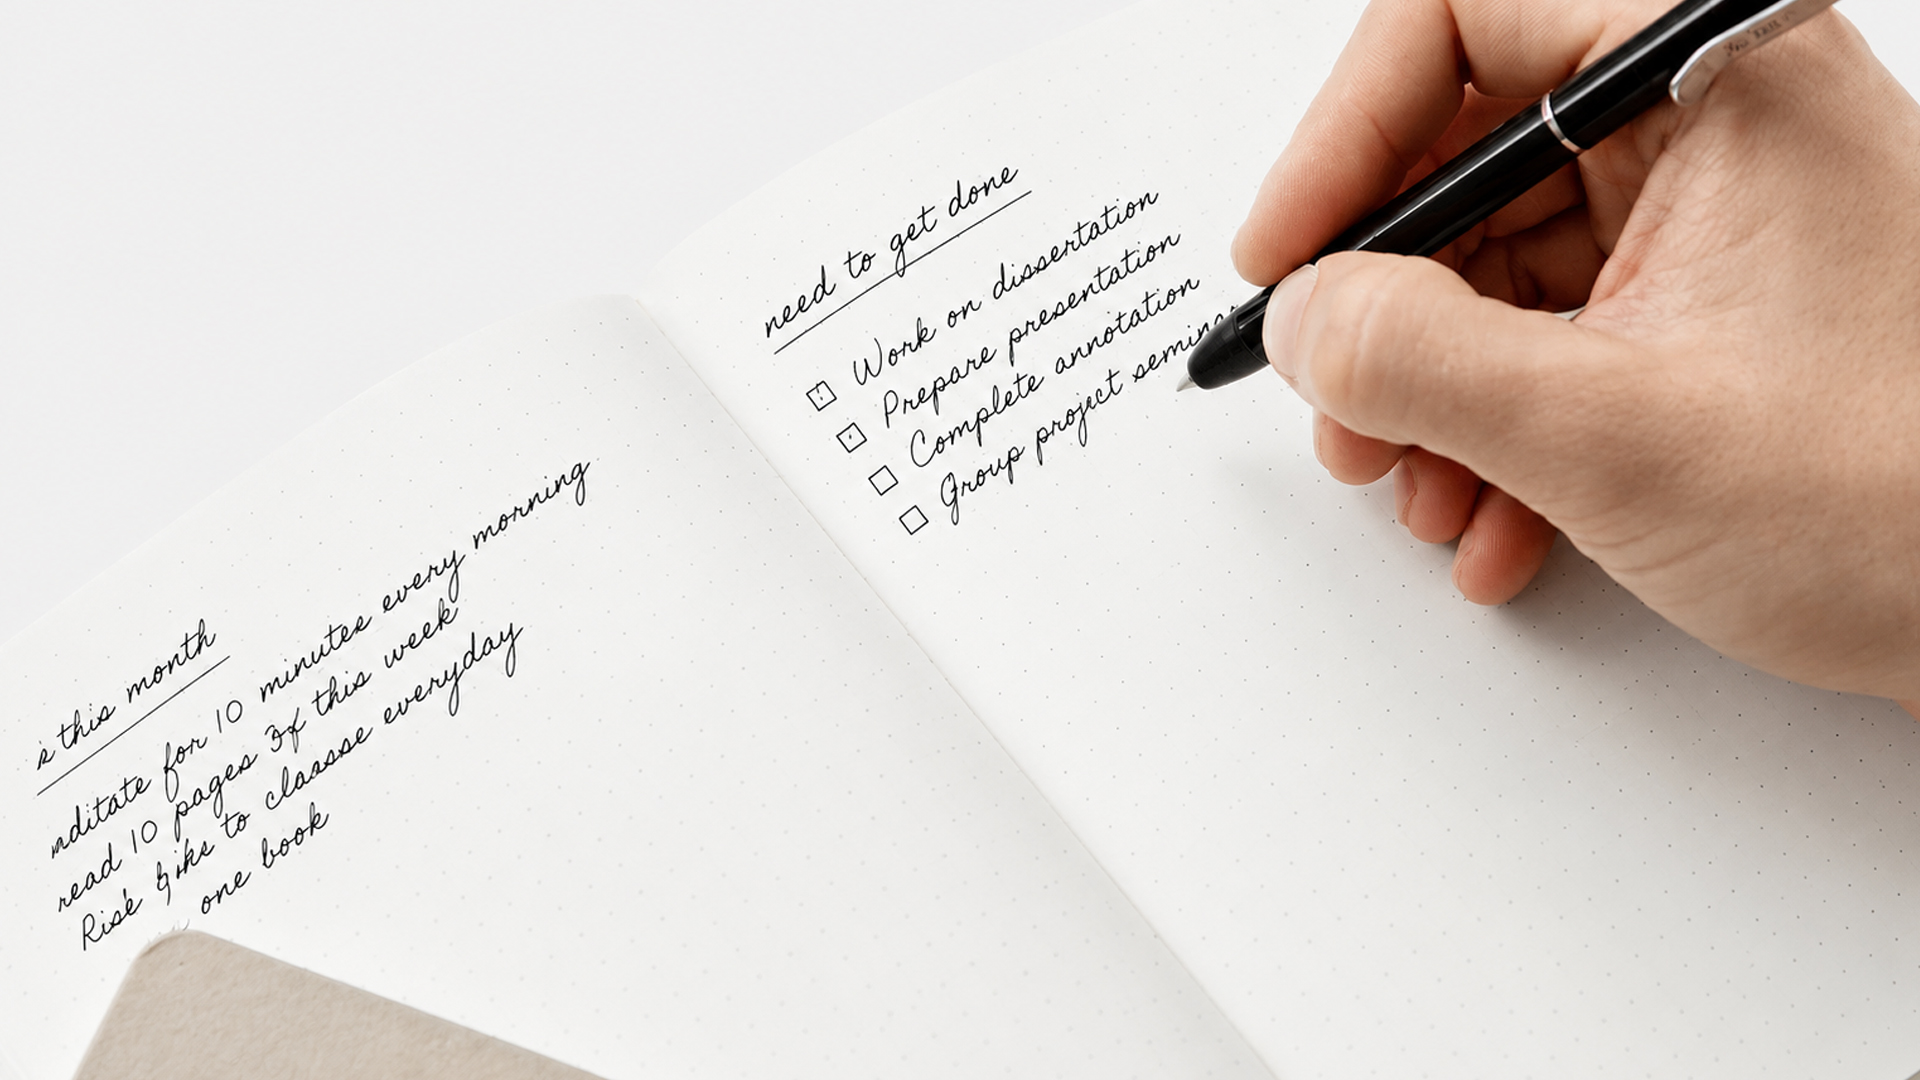 s this month
mditate for 10 minutes every morning
read 10 pages 3x this week
Rise to classse everyday
one book
need to get done
Work on dissertation
Prepare presentation
Complete annotation
Group project seminar